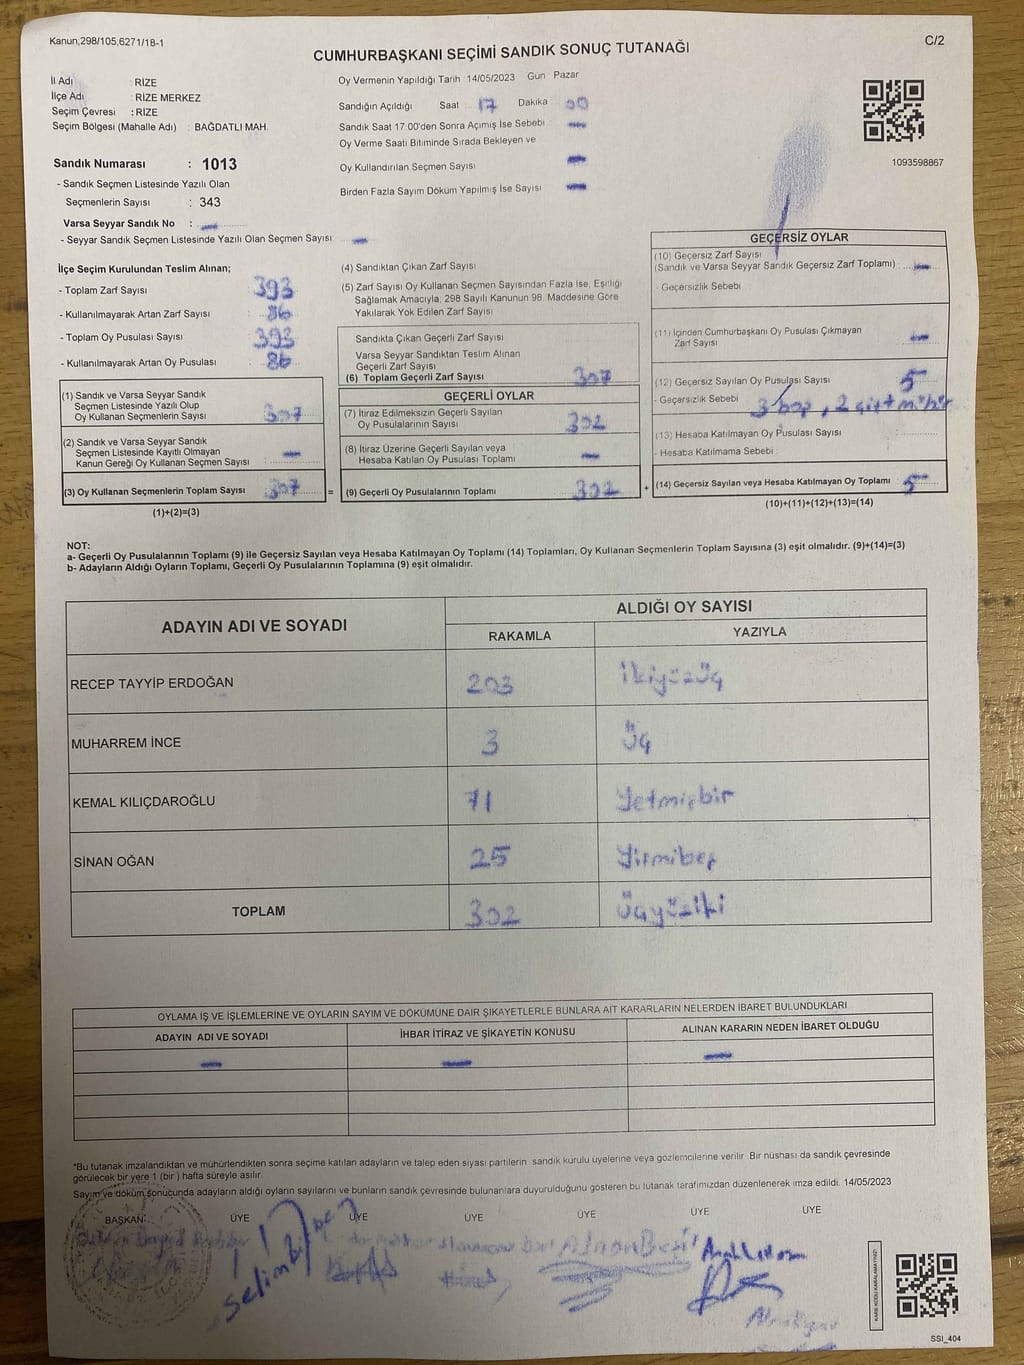 Kanun,298/105,6271/18-1
C/2
CUMHURBAŞKANI SEÇİMİ SANDIK SONUÇ TUTANAĞI
İl Adı : RİZE
İlçe Adı : RİZE MERKEZ
Seçim Çevresi : RİZE
Seçim Bölgesi (Mahalle Adı) : BAĞDATLI MAH.
Oy Vermenin Yapıldığı Tarih : 14/05/2023 Gün : Pazar
Sandığın Açıldığı Saat : 17 Dakika : 00
Sandık Saat 17.00'den Sonra Açımış İse Sebebi : —
Oy Verme Saati Bitiminde Sırada Bekleyen ve
Oy Kullandırılan Seçmen Sayısı : —
Birden Fazla Sayım Döküm Yapılmış İse Sayısı : —
1093598867
Sandık Numarası : 1013
- Sandık Seçmen Listesinde Yazılı Olan
Seçmenlerin Sayısı : 343
Varsa Seyyar Sandık No : —
- Seyyar Sandık Seçmen Listesinde Yazılı Olan Seçmen Sayısı : —
İlçe Seçim Kurulundan Teslim Alınan;
- Toplam Zarf Sayısı : 393
- Kullanılmayarak Artan Zarf Sayısı : 86
- Toplam Oy Pusulası Sayısı : 393
- Kullanılmayarak Artan Oy Pusulası : 86
(1) Sandık ve Varsa Seyyar Sandık
Seçmen Listesinde Yazılı Olup
Oy Kullanan Seçmenlerin Sayısı : 307
(2) Sandık ve Varsa Seyyar Sandık
Seçmen Listesinde Kayıtlı Olmayan
Kanun Gereği Oy Kullanan Seçmen Sayısı : —
(3) Oy Kullanan Seçmenlerin Toplam Sayısı : 307
(1)+(2)=(3)
(4) Sandıktan Çıkan Zarf Sayısı
(5) Zarf Sayısı Oy Kullanan Seçmen Sayısından Fazla İse, Eşitliği
Sağlamak Amacıyla, 298 Sayılı Kanunun 98. Maddesine Göre
Yakılarak Yok Edilen Zarf Sayısı
Sandıkta Çıkan Geçerli Zarf Sayısı
Varsa Seyyar Sandıktan Teslim Alınan
Geçerli Zarf Sayısı
(6) Toplam Geçerli Zarf Sayısı 307
GEÇERLİ OYLAR
(7) İtiraz Edilmeksizin Geçerli Sayılan
Oy Pusulalarının Sayısı 302
(8) İtiraz Üzerine Geçerli Sayılan veya
Hesaba Katılan Oy Pusulası Toplamı —
= (9) Geçerli Oy Pusulalarının Toplamı 302
GEÇERSİZ OYLAR
(10) Geçersiz Zarf Sayısı
(Sandık ve Varsa Seyyar Sandık Geçersiz Zarf Toplamı) : —
Geçersizlik Sebebi
(11) İçinden Cumhurbaşkanı Oy Pusulası Çıkmayan
Zarf Sayısı —
(12) Geçersiz Sayılan Oy Pusulası Sayısı 5
- Geçersizlik Sebebi 3 boş, 2 çift mühür
(13) Hesaba Katılmayan Oy Pusulası Sayısı
- Hesaba Katılmama Sebebi
+ (14) Geçersiz Sayılan veya Hesaba Katılmayan Oy Toplamı 5
(10)+(11)+(12)+(13)=(14)
NOT:
a- Geçerli Oy Pusulalarının Toplamı (9) ile Geçersiz Sayılan veya Hesaba Katılmayan Oy Toplamı (14) Toplamları, Oy Kullanan Seçmenlerin Toplam Sayısına (3) eşit olmalıdır. (9)+(14)=(3)
b- Adayların Aldığı Oyların Toplamı, Geçerli Oy Pusulalarının Toplamına (9) eşit olmalıdır.
ADAYIN ADI VE SOYADI
ALDIĞI OY SAYISI
RAKAMLA YAZIYLA
RECEP TAYYİP ERDOĞAN 203 ikiyüzüç
MUHARREM İNCE 3 üç
KEMAL KILIÇDAROĞLU 71 Yetmişbir
SİNAN OĞAN 25 Yirmibeş
TOPLAM 302 üçyüziki
OYLAMA İŞ VE İŞLEMLERİNE VE OYLARIN SAYIM VE DÖKÜMÜNE DAİR ŞİKAYETLERLE BUNLARA AİT KARARLARIN NELERDEN İBARET BULUNDUKLARI
ADAYIN ADI VE SOYADI İHBAR İTİRAZ VE ŞİKAYETİN KONUSU ALINAN KARARIN NEDEN İBARET OLDUĞU
— — —
*Bu tutanak imzalandıktan ve mühürlendikten sonra seçime katılan adayların ve talep eden siyasi partilerin sandık kurulu üyelerine veya gözlemcilerine verilir. Bir nüshası da sandık çevresinde
görülecek bir yere 1 (bir) hafta süreyle asılır.
Sayım ve döküm sonucunda adayların aldığı oyların sayılarını ve bunların sandık çevresinde bulunanlara duyurulduğunu gösteren bu tutanak tarafımızdan düzenlenerek imza edildi. 14/05/2023
BAŞKAN: ÜYE ÜYE ÜYE ÜYE ÜYE ÜYE
KARE KODU KARALAMAYINIZ!
SSİ_404